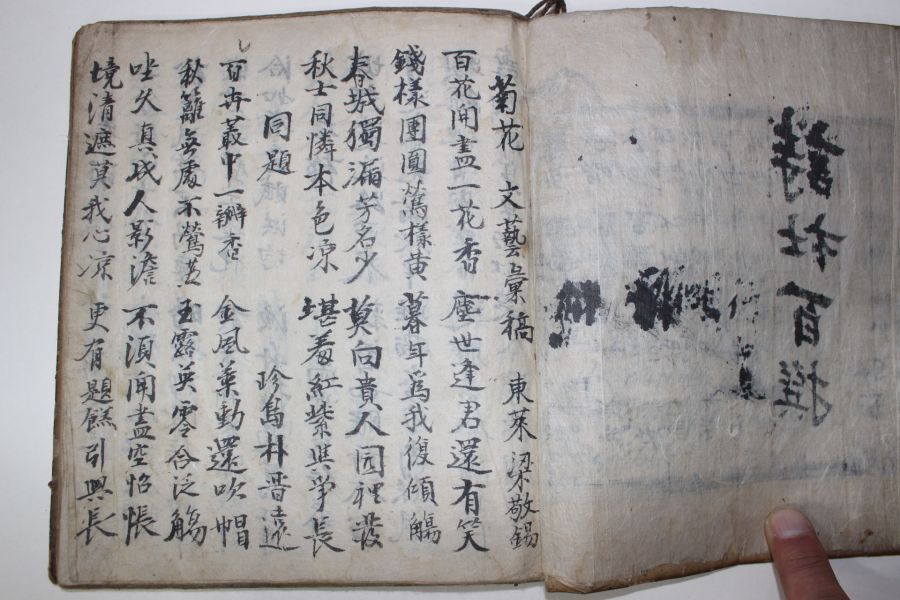 詩社百撰
菊花 文藝彙稿 東萊 梁敬錫
百花開盡一花香 塵世逢君還有笑
錢樣團圓鶯樣黄 暮年爲我復傾觴
春城獨漏芳名少 莫向貴人園裡發
秋士同憐本色凉 堪羞紅紫共爭長
同題 珍島朴晋遠
百卉叢中一瓣香 金風葉動還吹帽
秋籬無處不鶯黄 玉露英零合泛觴
坐久真成人影澹 不須開盡空怊悵
境清遮莫我心凉 更有題糕引興長